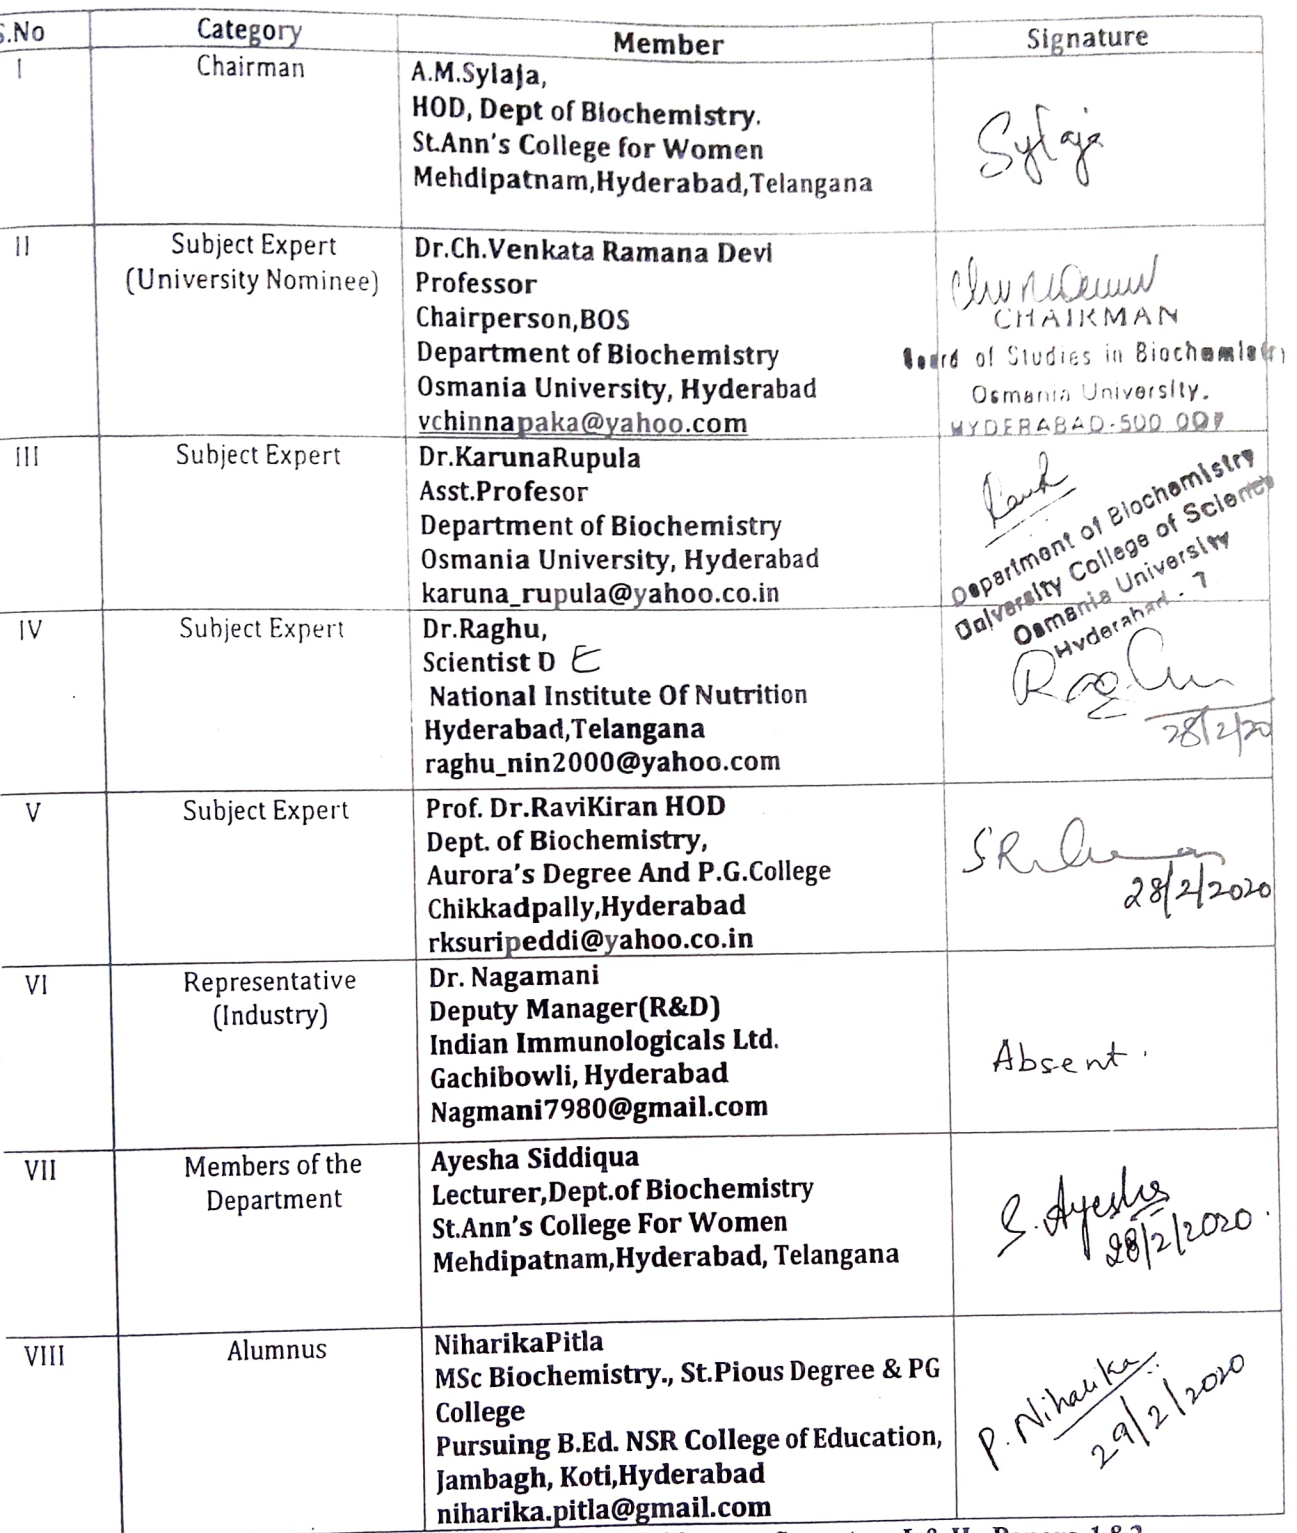 S.No Category Member Signature
I Chairman A.M.Sylaja,
HOD, Dept of Biochemistry.
St.Ann's College for Women
Mehdipatnam,Hyderabad,Telangana
Sylaja
II Subject Expert
(University Nominee)
Dr.Ch.Venkata Ramana Devi
Professor
Chairperson,BOS
Department of Biochemistry
Osmania University, Hyderabad
vchinnapaka@yahoo.com
CHAIRMAN
Board of Studies in Biochemistry
Osmania University.
HYDERABAD-500 007
III Subject Expert Dr.KarunaRupula
Asst.Profesor
Department of Biochemistry
Osmania University, Hyderabad
karuna_rupula@yahoo.co.in
Department of Biochemistry
University College of Science
Osmania University
Hyderabad - 7
IV Subject Expert Dr.Raghu,
Scientist D E
National Institute Of Nutrition
Hyderabad,Telangana
raghu_nin2000@yahoo.com
Raghu
28/2/20
V Subject Expert Prof. Dr.RaviKiran HOD
Dept. of Biochemistry,
Aurora's Degree And P.G.College
Chikkadpally,Hyderabad
rksuripeddi@yahoo.co.in
28/2/2020
VI Representative
(Industry)
Dr. Nagamani
Deputy Manager(R&D)
Indian Immunologicals Ltd.
Gachibowli, Hyderabad
Nagmani7980@gmail.com
Absent.
VII Members of the
Department
Ayesha Siddiqua
Lecturer,Dept.of Biochemistry
St.Ann's College For Women
Mehdipatnam,Hyderabad, Telangana
S. Ayesha
28/2/2020.
VIII Alumnus NiharikaPitla
MSc Biochemistry., St.Pious Degree & PG
College
Pursuing B.Ed. NSR College of Education,
Jambagh, Koti,Hyderabad
niharika.pitla@gmail.com
P. Niharika
29/2/2020